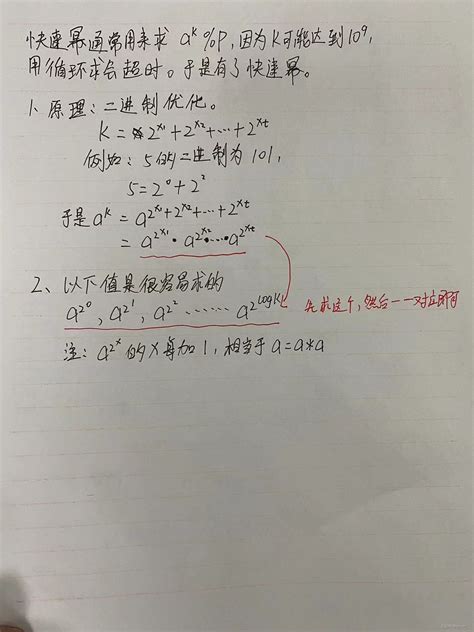 快速幂通常用来求 a^k %P,因为K可能达到10^9,
用循环求会超时。于是有了快速幂。
1、原理:二进制优化。
K = 2^x1 + 2^x2 + ... + 2^xt
例如:5的二进制为101,
5 = 2^0 + 2^2
于是 a^k = a^(2^x1 + 2^x2 + ... + 2^xt)
= a^(2^x1) · a^(2^x2) ····· a^(2^xt)
2、以下值是很容易求的
a^(2^0), a^(2^1), a^(2^2) ······ a^(2^logK) 先求这个,然后一一对应即可
注:a^(2^x) 的 x 每加1,相当于 a=a*a